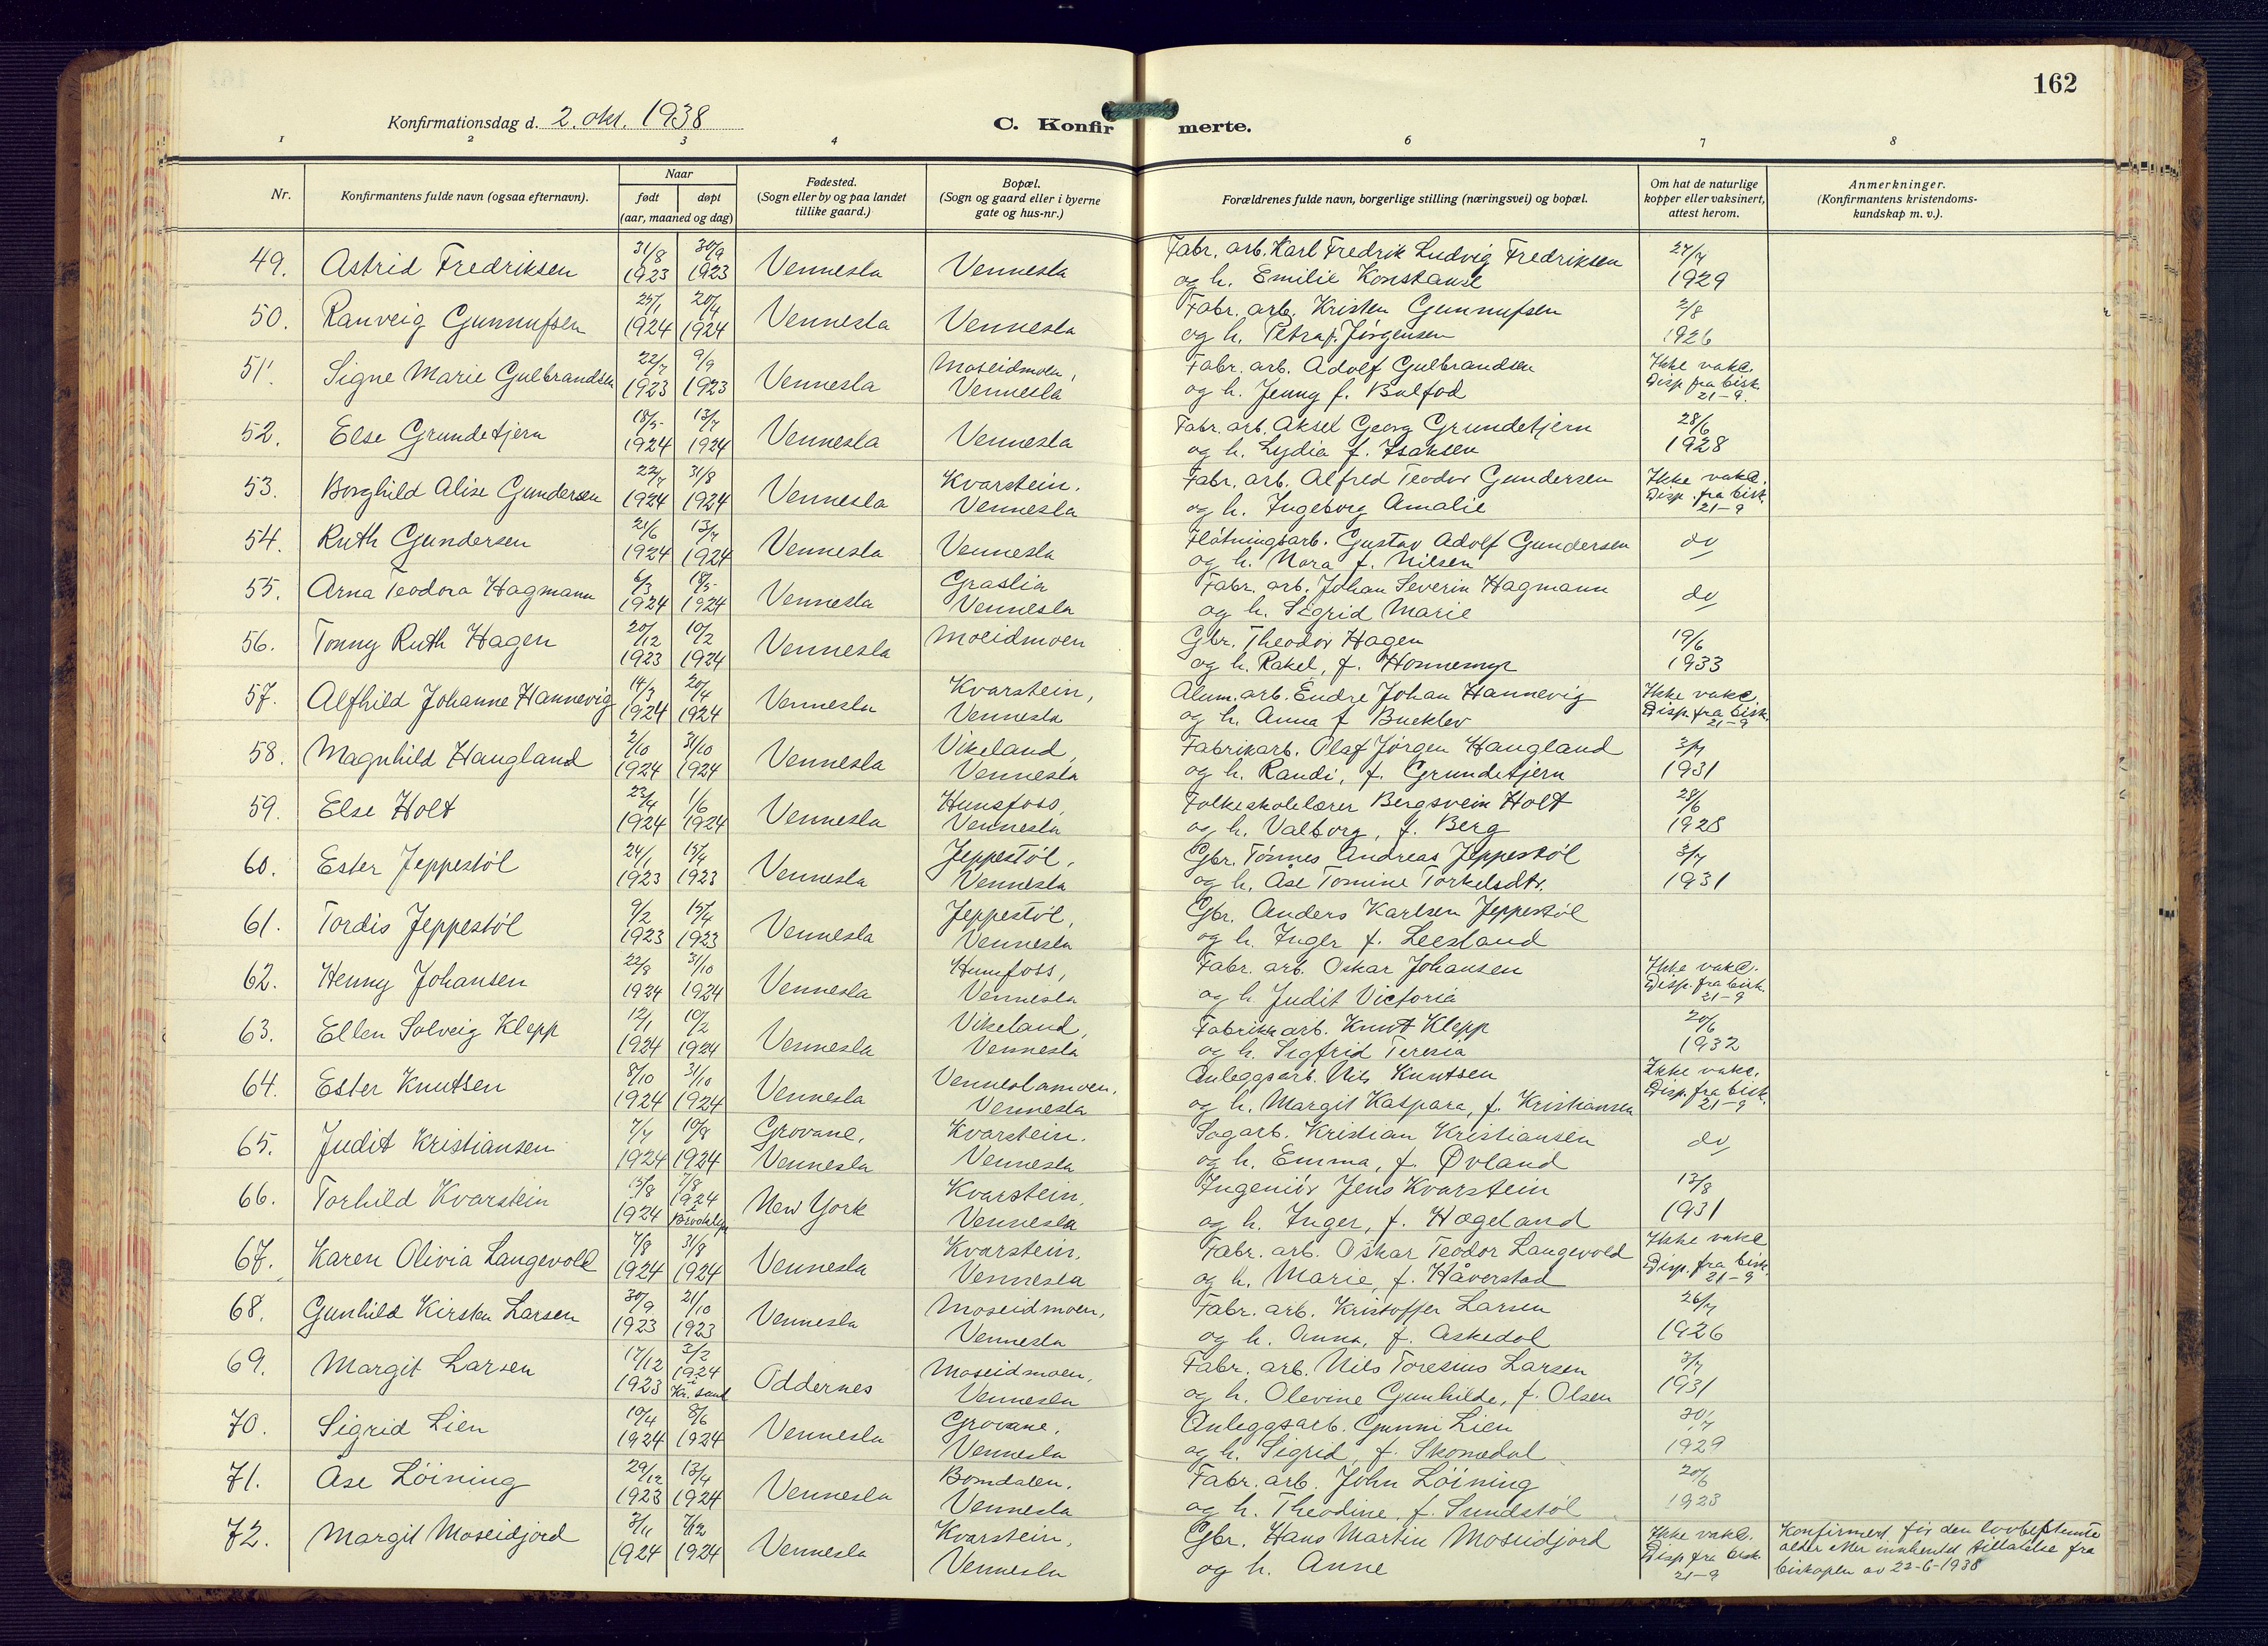 162
Konfirmationsdag d. 2. okt. 1938
C. Konfirmerte.
1 2 3 4 6 7 8
Nr. Konfirmantens fulde navn (ogsaa efternavn). Naar født døpt (aar, maaned og dag) Fødested. (Sogn eller by og paa landet tillike gaard.) Bopæl. (Sogn og gaard eller i byerne gate og hus-nr.) Forældrenes fulde navn, borgerlige stilling (næringsvei) og bopæl. Om hat de naturlige kopper eller vaksinert, attest herom. Anmerkninger. (Konfirmantens kristendomskundskap m. v.).
49. Astrid Fredriksen 31/8 1923 30/9 1923 Vennesla Vennesla Fabr. arb. Karl Fredrik Ludvig Fredriksen og h. Emilie Konstanse 27/7 1929
50. Ranveig Gunnufsen 25/1 1924 20/4 1924 Vennesla Vennesla Fabr. arb. Kristen Gunnufsen og h. Petra f. Jørgensen 2/8 1926
51. Signe Marie Gulbrandsen 22/7 1923 9/9 1923 Vennesla Moseidmoen, Vennesla Fabr. arb. Adolf Gulbrandsen og h. Jenny f. Balfod Ikke vakc. Disp fra bisk. 21-9.
52. Else Grundetjern 18/5 1924 13/7 1924 Vennesla Vennesla Fabr. arb. Aksel Georg Grundetjern og h. Lydia f. Isaksen 28/6 1928
53. Borghild Alise Gundersen 22/7 1924 31/8 1924 Vennesla Kvarstein. Vennesla Fabr. arb. Alfred Teodor Gundersen og h. Ingeborg Amalie Ikke vakc. Disp. fra bisk. 21-9
54. Ruth Gundersen 21/6 1924 13/7 1924 Vennesla Vennesla Fløtningsarb. Gustav Adolf Gundersen og h. Nora f. Nilsen do
55. Arna Teodora Hagmann 6/3 1924 18/5 1924 Vennesla Graslia Vennesla Fabr. arb. Johan Severin Hagmann og h. Sigrid Marie do
56. Tonny Ruth Hagen 20/12 1923 10/2 1924 Vennesla Moeidmoen Gbr. Theodor Hagen og h. Rakel, f. Honnemyr 19/6 1933
57. Alfhild Johanne Hannevig 14/3 1924 20/4 1924 Vennesla Kvarstein, Vennesla Alum. arb. Endre Johan Hannevig og h. Anna f Buckler Ikke vakc. Disp. fra bisk. 21-9
58. Magnhild Haugland 2/10 1924 31/10 1924 Vennesla Vikeland, Vennesla Fabrikarb. Olaf Jørgen Haugland og h. Randi, f. Grundetjern 3/7 1931
59. Else Holt 23/4 1924 1/6 1924 Vennesla Hunsfoss, Vennesla Folkeskolelærer Bergsvein Holt og h. Valborg, f. Berg 28/6 1928
60. Ester Jeppestøl 24/1 1923 15/4 1923 Vennesla Jeppestøl, Vennesla Gbr. Tønnes Andreas Jeppestøl og h. Åse Tomine Torkelsdtr. 3/7 1931
61. Tordis Jeppestøl 9/2 1923 15/4 1923 Vennesla Jeppestøl, Vennesla Gbr. Anders Karlsen Jeppestøl og h. Inger f. Leesland
62. Henny Johansen 22/8 1924 31/10 1924 Vennesla Hunsfoss, Vennesla Fabr. arb. Oskar Johansen og h. Judit Victoria Ikke vakc. Disp. fra bisk. 21-9
63. Ellen Solveig Klepp 12/1 1924 10/2 1924 Vennesla Vikeland, Vennesla Fabrikkarb. Knut Klepp og h. Sigfrid Teresia 20/6 1932
64. Ester Knutsen 8/10 1924 31/10 1924 Vennesla Venneslamoen, Vennesla Anleggsarb. Nils Knutsen og h. Margit Kaspara, f. Kristiansen Ikke vakc. Disp. fra bisk. 21-9
65. Judit Kristiansen 7/7 1924 10/8 1924 Grovane, Vennesla Kvarstein. Vennesla Sagarb. Kristian Kristiansen og h. Emma, f. Øvland do
66. Torhild Kvarstein 1924 1924 i Brooklyn New York Kvarstein, Vennesla Ingeniør Jens Kvarstein og h. Inger, f. Hægeland 13/8 1931
67. Karen Olivia Langevold 7/8 1924 31/8 1924 Vennesla Kvarstein, Vennesla Fabr. arb. Oskar Teodor Langevold og h. Marie, f. Håverstad Ikke vakc Disp. fra bisk. 21-9
68. Gunhild Kirsten Larsen 30/9 1923 21/10 1923 Vennesla Moseidmoen, Vennesla Fabr. arb. Kristoffer Larsen og h. Anna, f. Askedal 26/7 1926
69. Margit Larsen 17/12 1923 3/2 1924 i Kr. sand Oddernes Moseidmoen, Vennesla Fabr. arb. Nils Toresius Larsen og h. Olevine Gunhilde, f. Olsen 3/7 1931
70. Sigrid Lien 10/4 1924 8/6 1924 Vennesla Grovane, Vennesla Anleggsarb. Gunni Lien og h. Sigrid, f. Skomedal 30/7 1929
71. Åse Løining 29/12 1923 13/4 1924 Vennesla Bomdalen, Vennesla Fabr. arb. John Løining og h. Theodine, f. Sundstøl 20/6 1923
72. Margit Moseidjord 3/11 1924 7/12 1924 Vennesla Kvarstein, Vennesla Gbr. Hans Martin Moseidjord og h. Anne Ikke vakc. Disp fra bisk. 21-9 Konfirmert før den lovbestemte alder etter innhentet tillatelse fra biskopen av 22-6-1938